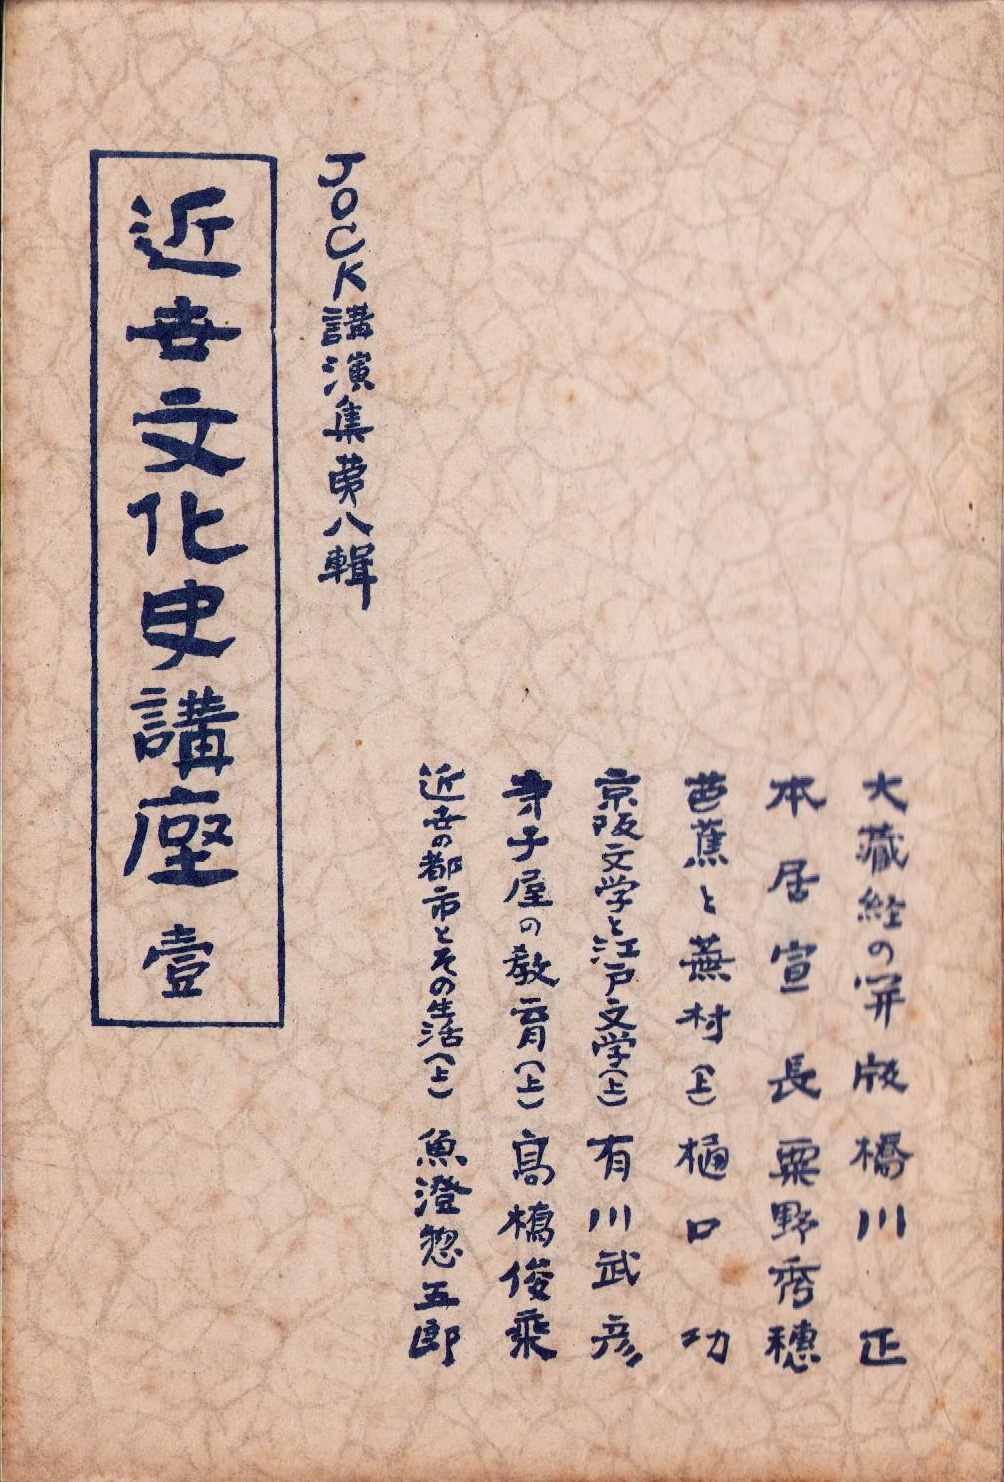 大藏経の開版 橋川正
本居宣長 粟野秀穂
芭蕉と蕪村(上) 樋口功
京阪文学と江戸文学(上) 有川武彦
寺子屋の教育(上) 高橋俊乗
近世の都市とその生活(上) 魚澄惣五郎
JOCK講演集第八輯
近世文化史講座 壹